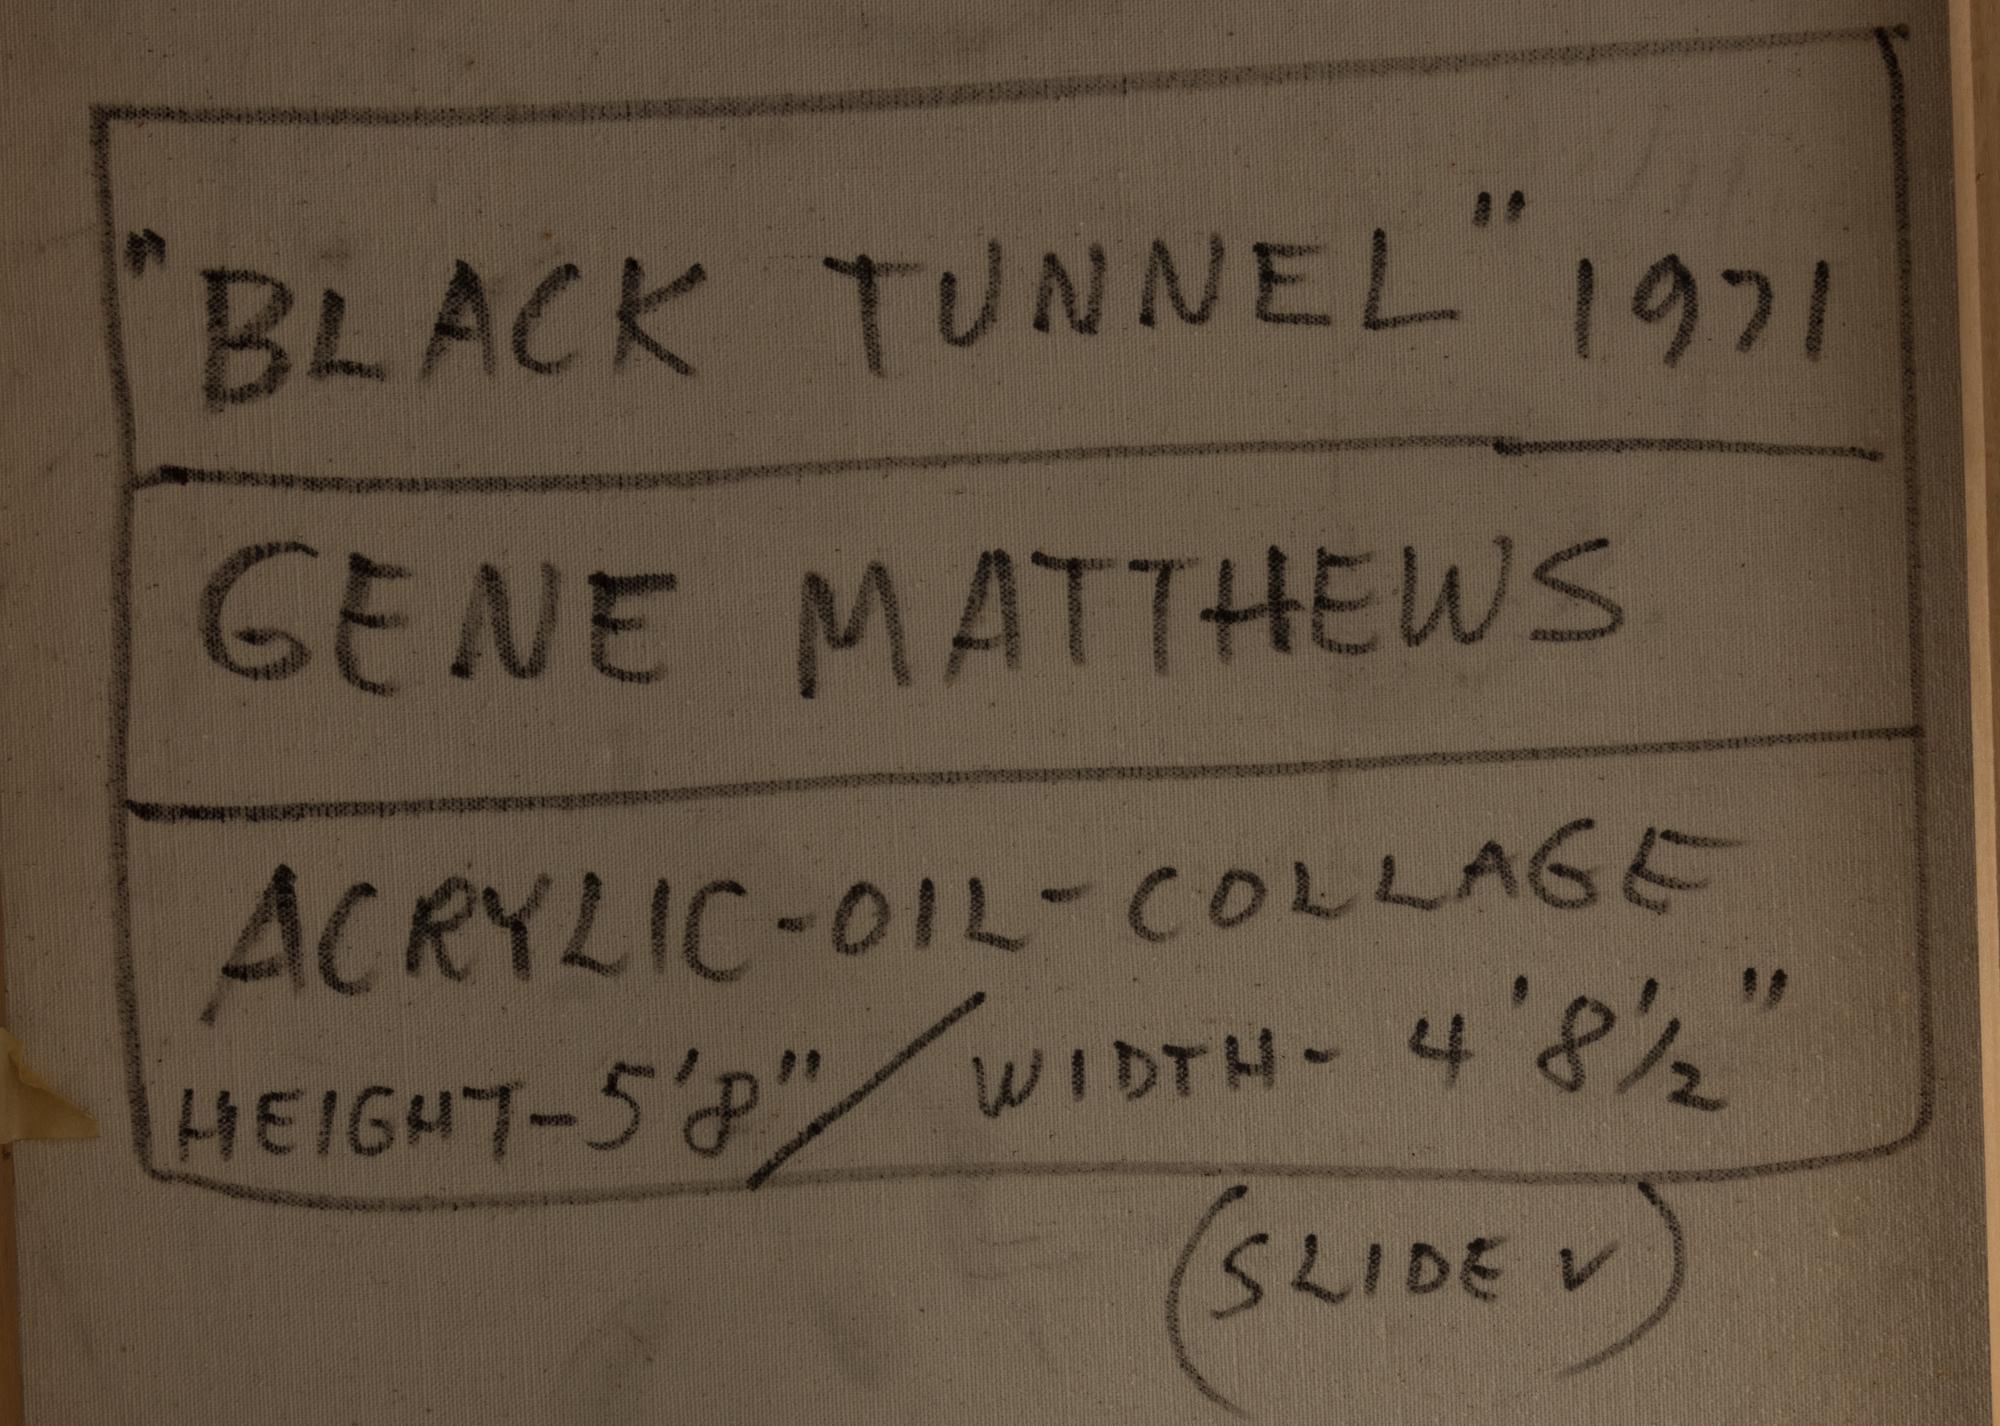 "BLACK TUNNEL" 1971
GENE MATTHEWS
ACRYLIC-OIL-COLLAGE
HEIGHT-5'8" / WIDTH- 4'8½"
(SLIDE ✓)